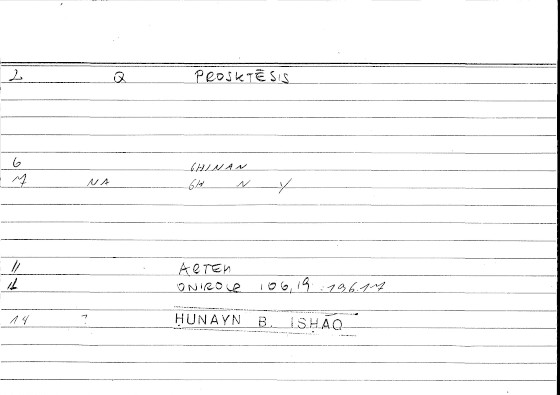 2 Q PROSKTĒSIS
6 GHINAN
7 NA GH N Y
11 ARTEM
12 ONIROCR 106,19 :196.17
14 ? ḤUNAYN B. ISḤĀQ